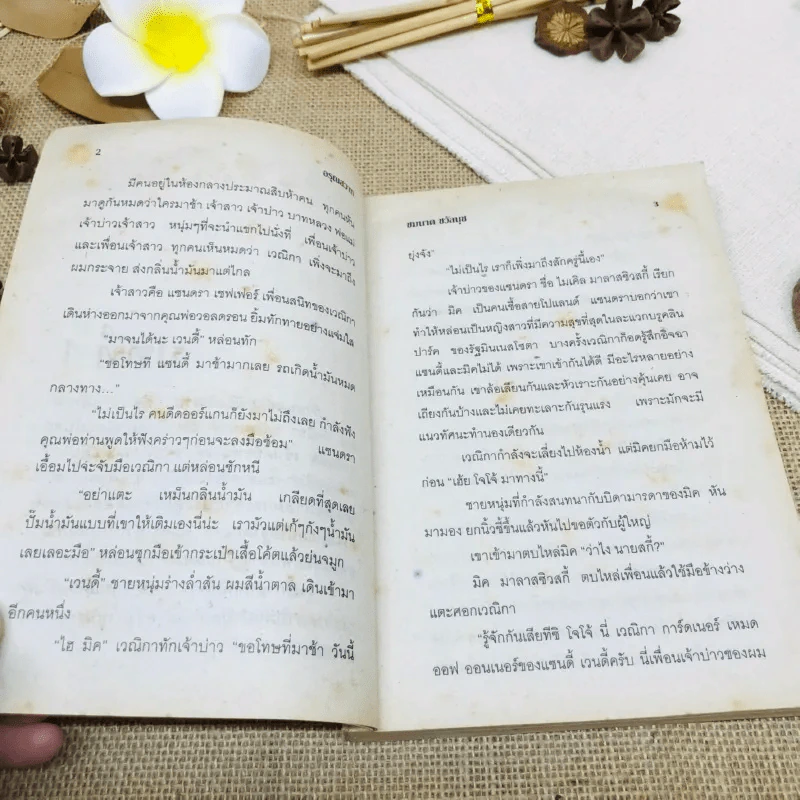 2
อรุณสวาท
มีคนอยู่ในห้องกลางประมาณสิบห้าคน ทุกคนหัน
มาดูกันหมดว่าใครมาช้า เจ้าสาว เจ้าบ่าว บาทหลวง พ่อแม่
เจ้าบ่าวเจ้าสาว หนุ่มๆที่จะนำแขกไปนั่งที่ เพื่อนเจ้าบ่าว
และเพื่อนเจ้าสาว ทุกคนเห็นหมดว่า เวณิกา เพิ่งจะมาถึง
ผมกระจาย ส่งกลิ่นน้ำมันมาแต่ไกล
เจ้าสาวคือ แซนดรา เชฟเฟอร์ เพื่อนสนิทของเวณิกา
เดินห่างออกมาจากคุณพ่อวอลดรอน ยิ้มทักทายอย่างแจ่มใส
“มาจนได้นะ เวนดี้” หล่อนทัก
“ขอโทษที แซนดี้ มาช้ามากเลย รถเกิดน้ำมันหมด
กลางทาง...”
“ไม่เป็นไร คนดีดออร์แกนก็ยังมาไม่ถึงเลย กำลังฟัง
คุณพ่อท่านพูดให้ฟังคร่าวๆก่อนจะลงมือซ้อม” แซนดรา
เอื้อมไปจะจับมือเวณิกา แต่หล่อนชักหนี
“อย่าแตะ เหม็นกลิ่นน้ำมัน เกลียดที่สุดเลย
ปั๊มน้ำมันแบบที่เขาให้เติมเองนี่น่ะ เรามัวแต่เก้ๆกังๆน้ำมัน
เลยเลอะมือ” หล่อนซุกมือเข้ากระเป๋าเสื้อโค้ตแล้วย่นจมูก
“เวนดี้” ชายหนุ่มร่างล่ำสัน ผมสีน้ำตาล เดินเข้ามา
อีกคนหนึ่ง
“ไฮ มิค” เวณิกาทักเจ้าบ่าว “ขอโทษที่มาช้า วันนี้
ชมนาด ชวัลนุช
3
ยุ่งจัง”
“ไม่เป็นไร เราก็เพิ่งมาถึงสักครู่นี้เอง”
เจ้าบ่าวของแซนดรา ชื่อ ไมเคิล มาลาสซิวสกี้ เรียก
กันว่า มิค เป็นคนเชื้อสายโปแลนด์ แซนดราบอกว่าเขา
ทำให้หล่อนเป็นหญิงสาวที่มีความสุขที่สุดในละแวกบรูคลิน
ปาร์ค ของรัฐมินเนสโซตา บางครั้งเวณิกาก็อดรู้สึกอิจฉา
แซนดี้และมิคไม่ได้ เพราะเขาเข้ากันได้ดี มีอะไรหลายอย่าง
เหมือนกัน เขาล้อเลียนกันและหัวเราะกันอย่างคุ้นเคย อาจ
เถียงกันบ้างและไม่เคยทะเลาะกันรุนแรง เพราะมักจะมี
แนวทัศนะทำนองเดียวกัน
เวณิกากำลังจะเลี่ยงไปห้องน้ำ แต่มิคยกมือห้ามไว้
ก่อน “เฮ้ย โจโจ้ มาทางนี้”
ชายหนุ่มที่กำลังสนทนากับบิดามารดาของมิค หัน
มามอง ยกนิ้วชี้ขึ้นแล้วหันไปขอตัวกับผู้ใหญ่
เขาเข้ามาตบไหล่มิค “ว่าไง นายสกี้?”
มิค มาลาสซิวสกี้ ตบไหล่เพื่อนแล้วใช้มือข้างว่าง
แตะศอกเวณิกา
“รู้จักกันเสียทีซิ โจโจ้ นี่ เวณิกา การ์ดเนอร์ เหมด
ออฟ ออนเนอร์ของแซนดี้ เวนดี้ครับ นี่เพื่อนเจ้าบ่าวของผม